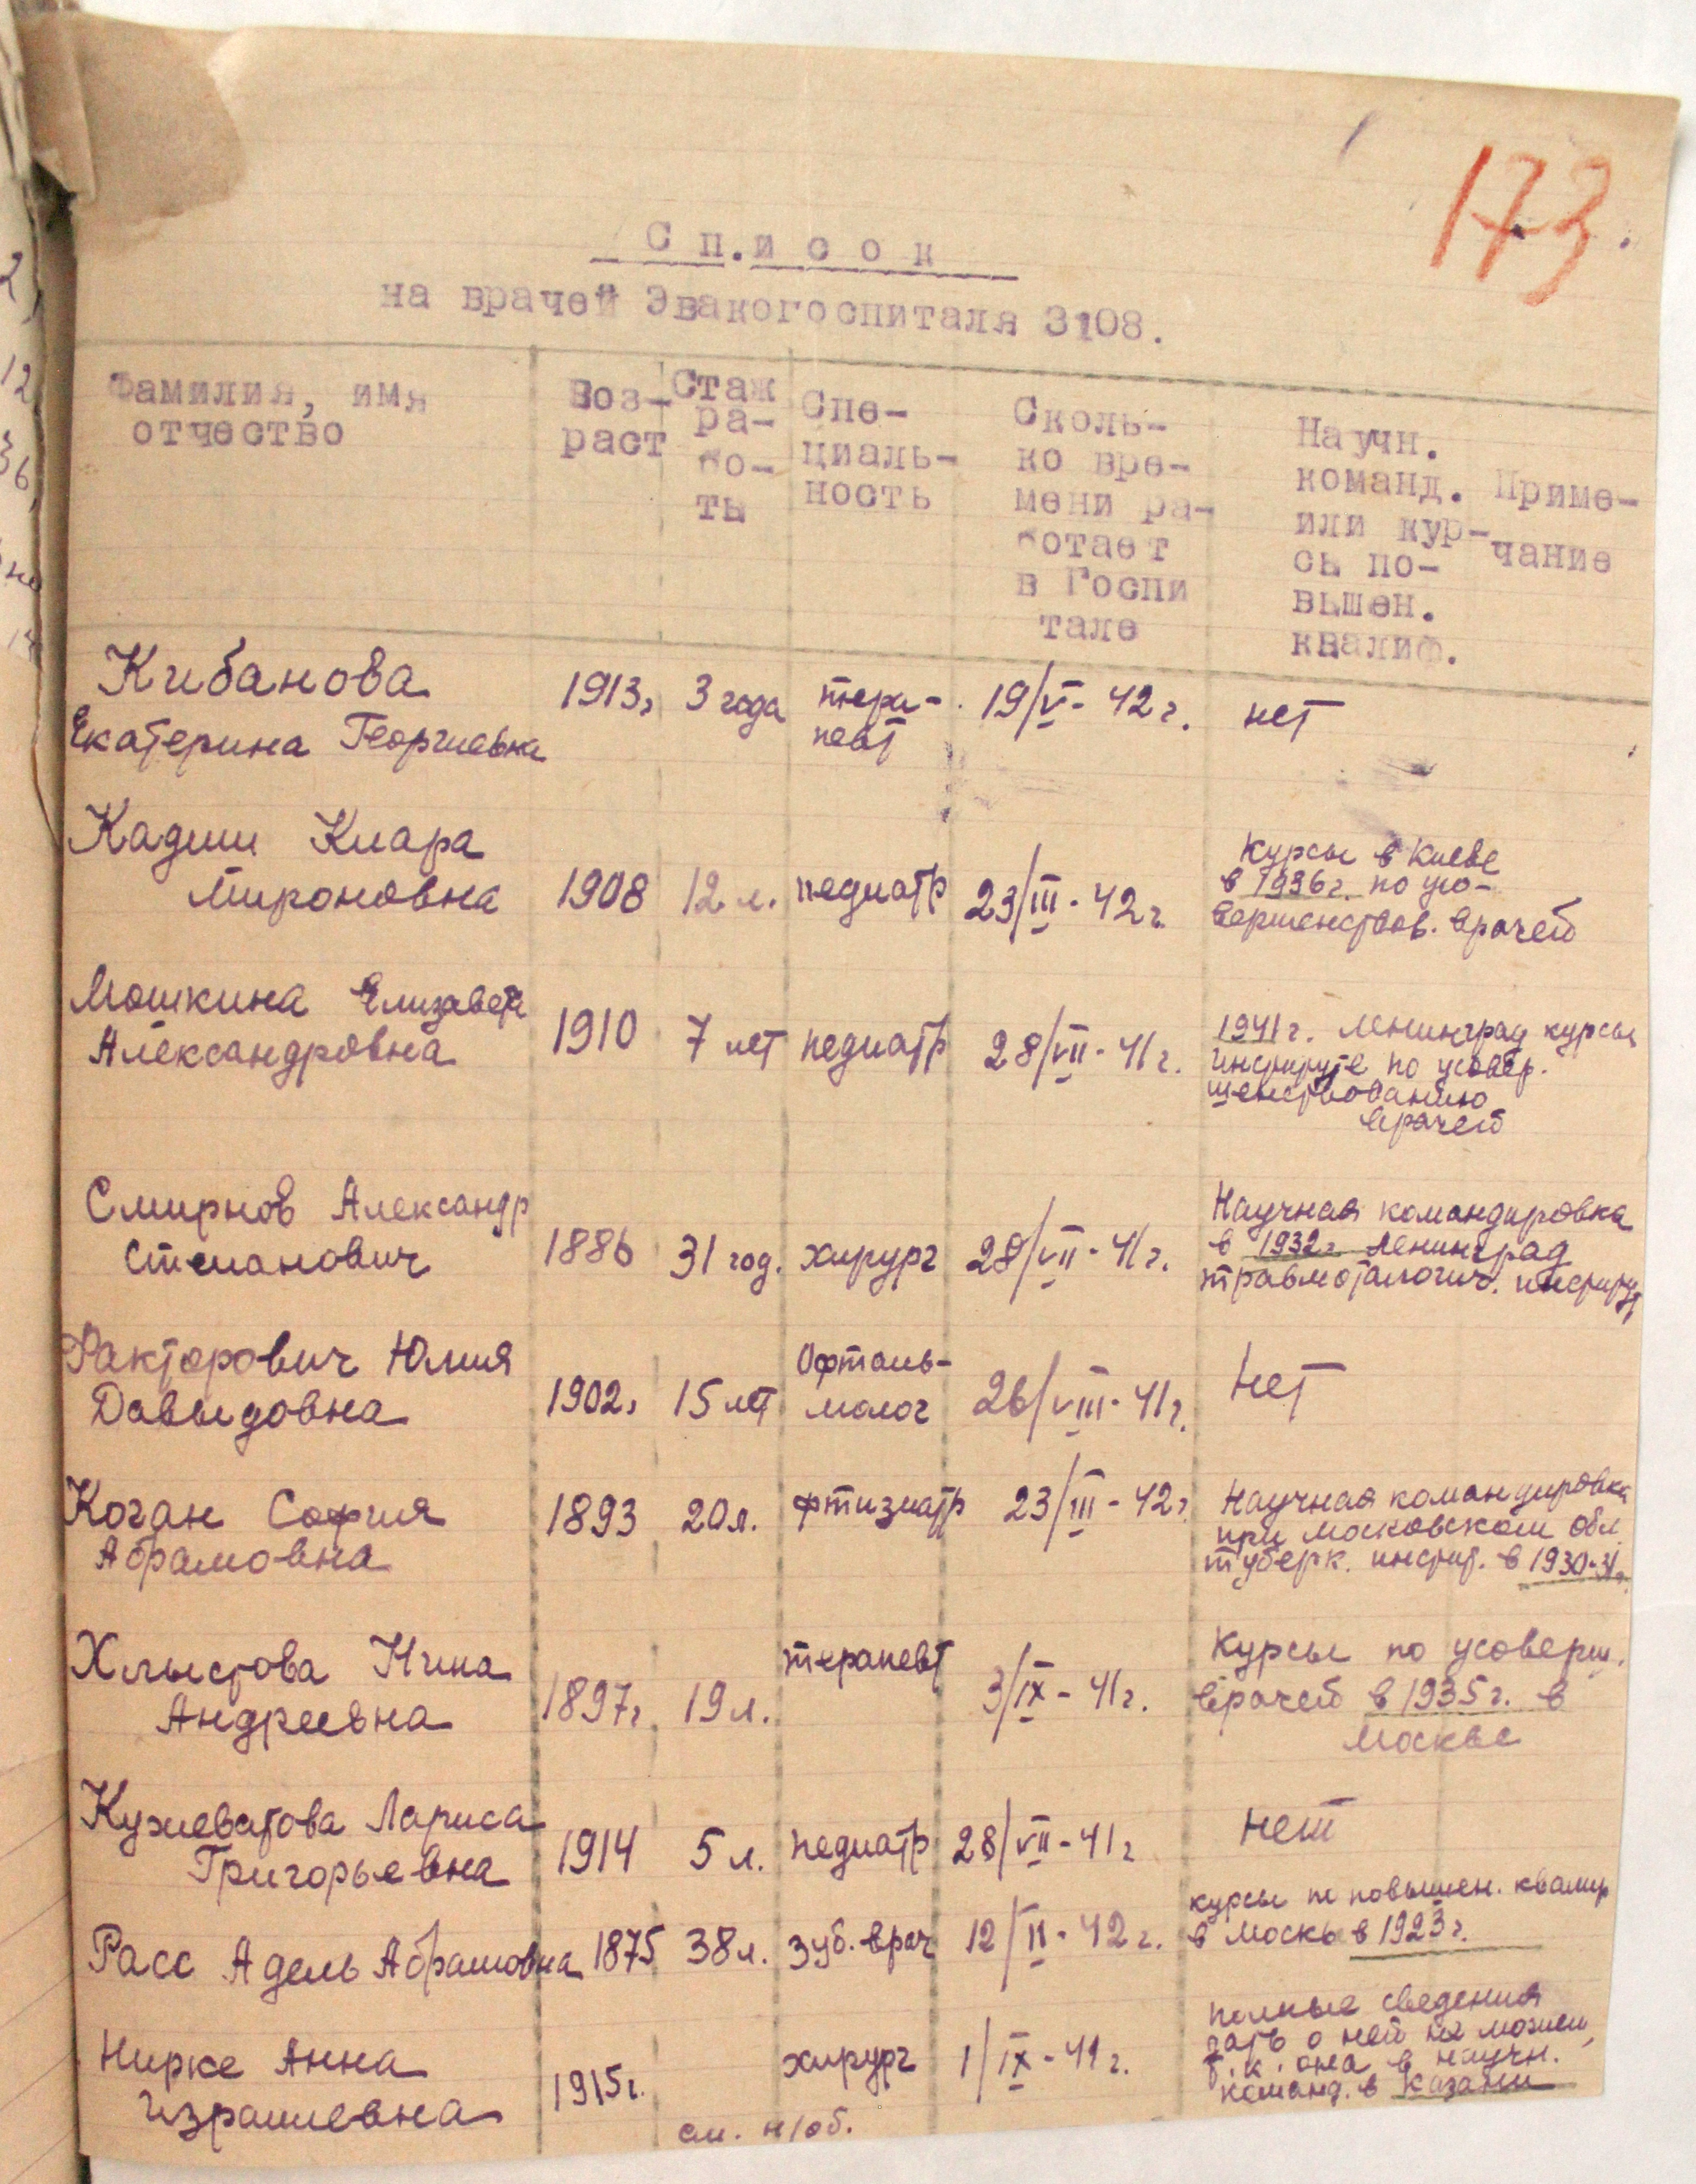 173.
Сп.исок
на врачей Эвакогоспиталя 3108.
Фамилия, имя
отчество
Воз-
раст
Стаж
ра-
бо-
ты
Спе-
циаль-
ность
Сколь-
ко вре-
мени ра-
ботает
в Госпи
тале
Научн.
команд.
или кур-
сы по-
вышен.
квалиф.
Приме-
чание
Кибанова
Екатерина Георгиевна
1913г
3 года
тера-
певт
19/V - 42 г.
нет
Кадиш Клара
Мироновна
1908
12 л.
педиатр
23/III - 42 г.
Курсы в Киеве
в 1936г. по усо-
вершенствов. врачей
Мошкина Елизавета
Александровна
1910
7 лет
педиатр
28/VII - 41 г.
1941 г. Ленинград курсы
институте по усовер.
шенствованию
врачей
Смирнов Александр
Степанович
1886
31 год.
хирург
28/VII - 41 г.
Научная командировка
в 1932 г Ленинград
травмоталогич. институт
Факторович Юлия
Давыдовна
1902г
15 лет
Офталь-
молог
26/VIII - 41 г.
Нет
Коган София
Абрамовна
1893
20 л.
фтизиатр
23/III - 42 г
Научная командировка
при Московском обл
туберк. инстит. в 1930-31г.
Хлыстова Нина
Андреевна
1897г
19 л.
терапевт
3/IX - 41 г.
Курсы по усоверш.
врачей в 1935 г. в
Москве
Кужеватова Лариса
Григорьевна
1914
5 л.
педиатр
28/VII - 41 г
Нет
Расс Адель Абрамовна
1875
38 л.
зуб. врач
12/II - 42 г.
курсы по повышен. квалиф
в Москв в 1923 г.
Нирке Анна
Израилевна
1915г.
хирург
1/IX - 41 г.
полные сведения
дать о ней не можем,
т. к. она в научн.
команд. в Казани
см. н/об.